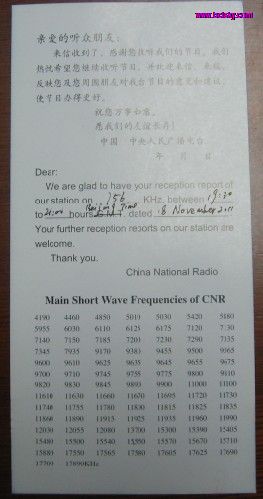 亲爱的听众朋友:
来信收到了，感谢您收听我们的节目。我们
热忱希望您继续收听节目，并欢迎来信、来稿，
反映您及您周围朋友对我台节目的意见和建议，
使节目办得更好。
祝您万事如意。
愿我们的友谊长存!
中国 中央人民广播电台
年 月 日
Dear:
We are glad to have your reception report of
our station on 756 KHz, between 19:30
Beijing Time
to 21:00 hours GMT, dated 18 November 2011
Your further reception reports on our station are
welcome.
Thank you.
China National Radio
Main Short Wave Frequencies of CNR
4190 4460 4850 5010 5030 5420 5180
5955 6030 6110 6125 6175 7120 7130
7140 7150 7185 7200 7230 7290 7335
7345 7935 9170 9380 9455 9500 9565
9600 9610 9625 9635 9645 9655 9675
9700 9710 9745 9755 9775 9800 9810
9820 9830 9845 9890 9900 11000 11100
11610 11630 11660 11670 11695 11720 11730
11740 11755 11780 11800 11815 11825 11835
11860 11890 11915 11925 11935 11960 11990
12030 12055 12080 13700 15300 15390 15405
15480 15500 15540 15550 15570 15670 15710
15880 17550 17565 17580 17605 17625 17690
17700 17890KHz